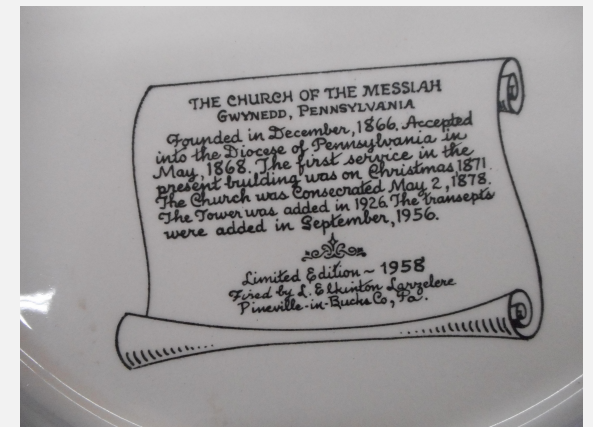 THE CHURCH OF THE MESSIAH
GWYNEDD, PENNSYLVANIA
Founded in December, 1866. Accepted
into the Diocese of Pennsylvania in
May, 1868. The first service in the
present building was on Christmas, 1871.
The Church was Consecrated May 2, 1878.
The Tower was added in 1926. The transepts
were added in September, 1956.
Limited Edition ~ 1958
Fired by L. Elkinton Larzelere
Pineville-in-Bucks Co., Pa.